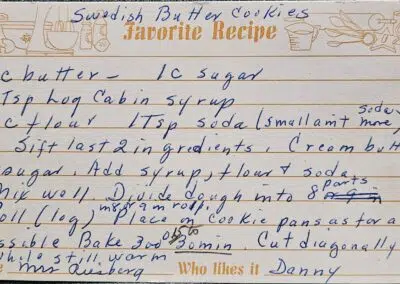 Swedish Butter Cookies
Favorite Recipe
c butter - 1c sugar
Tsp Log Cabin syrup
c flour 1 Tsp soda (small amt soda more)
Sift last 2 ingredients. Cream butt
sugar. Add syrup, flour & soda
Mix well. Divide dough into 8 parts
oll (log) Place on cookie pans as far a
ssible Bake 300° 30 min. Cut diagonally
while still warm
Mrs
Who likes it Danny